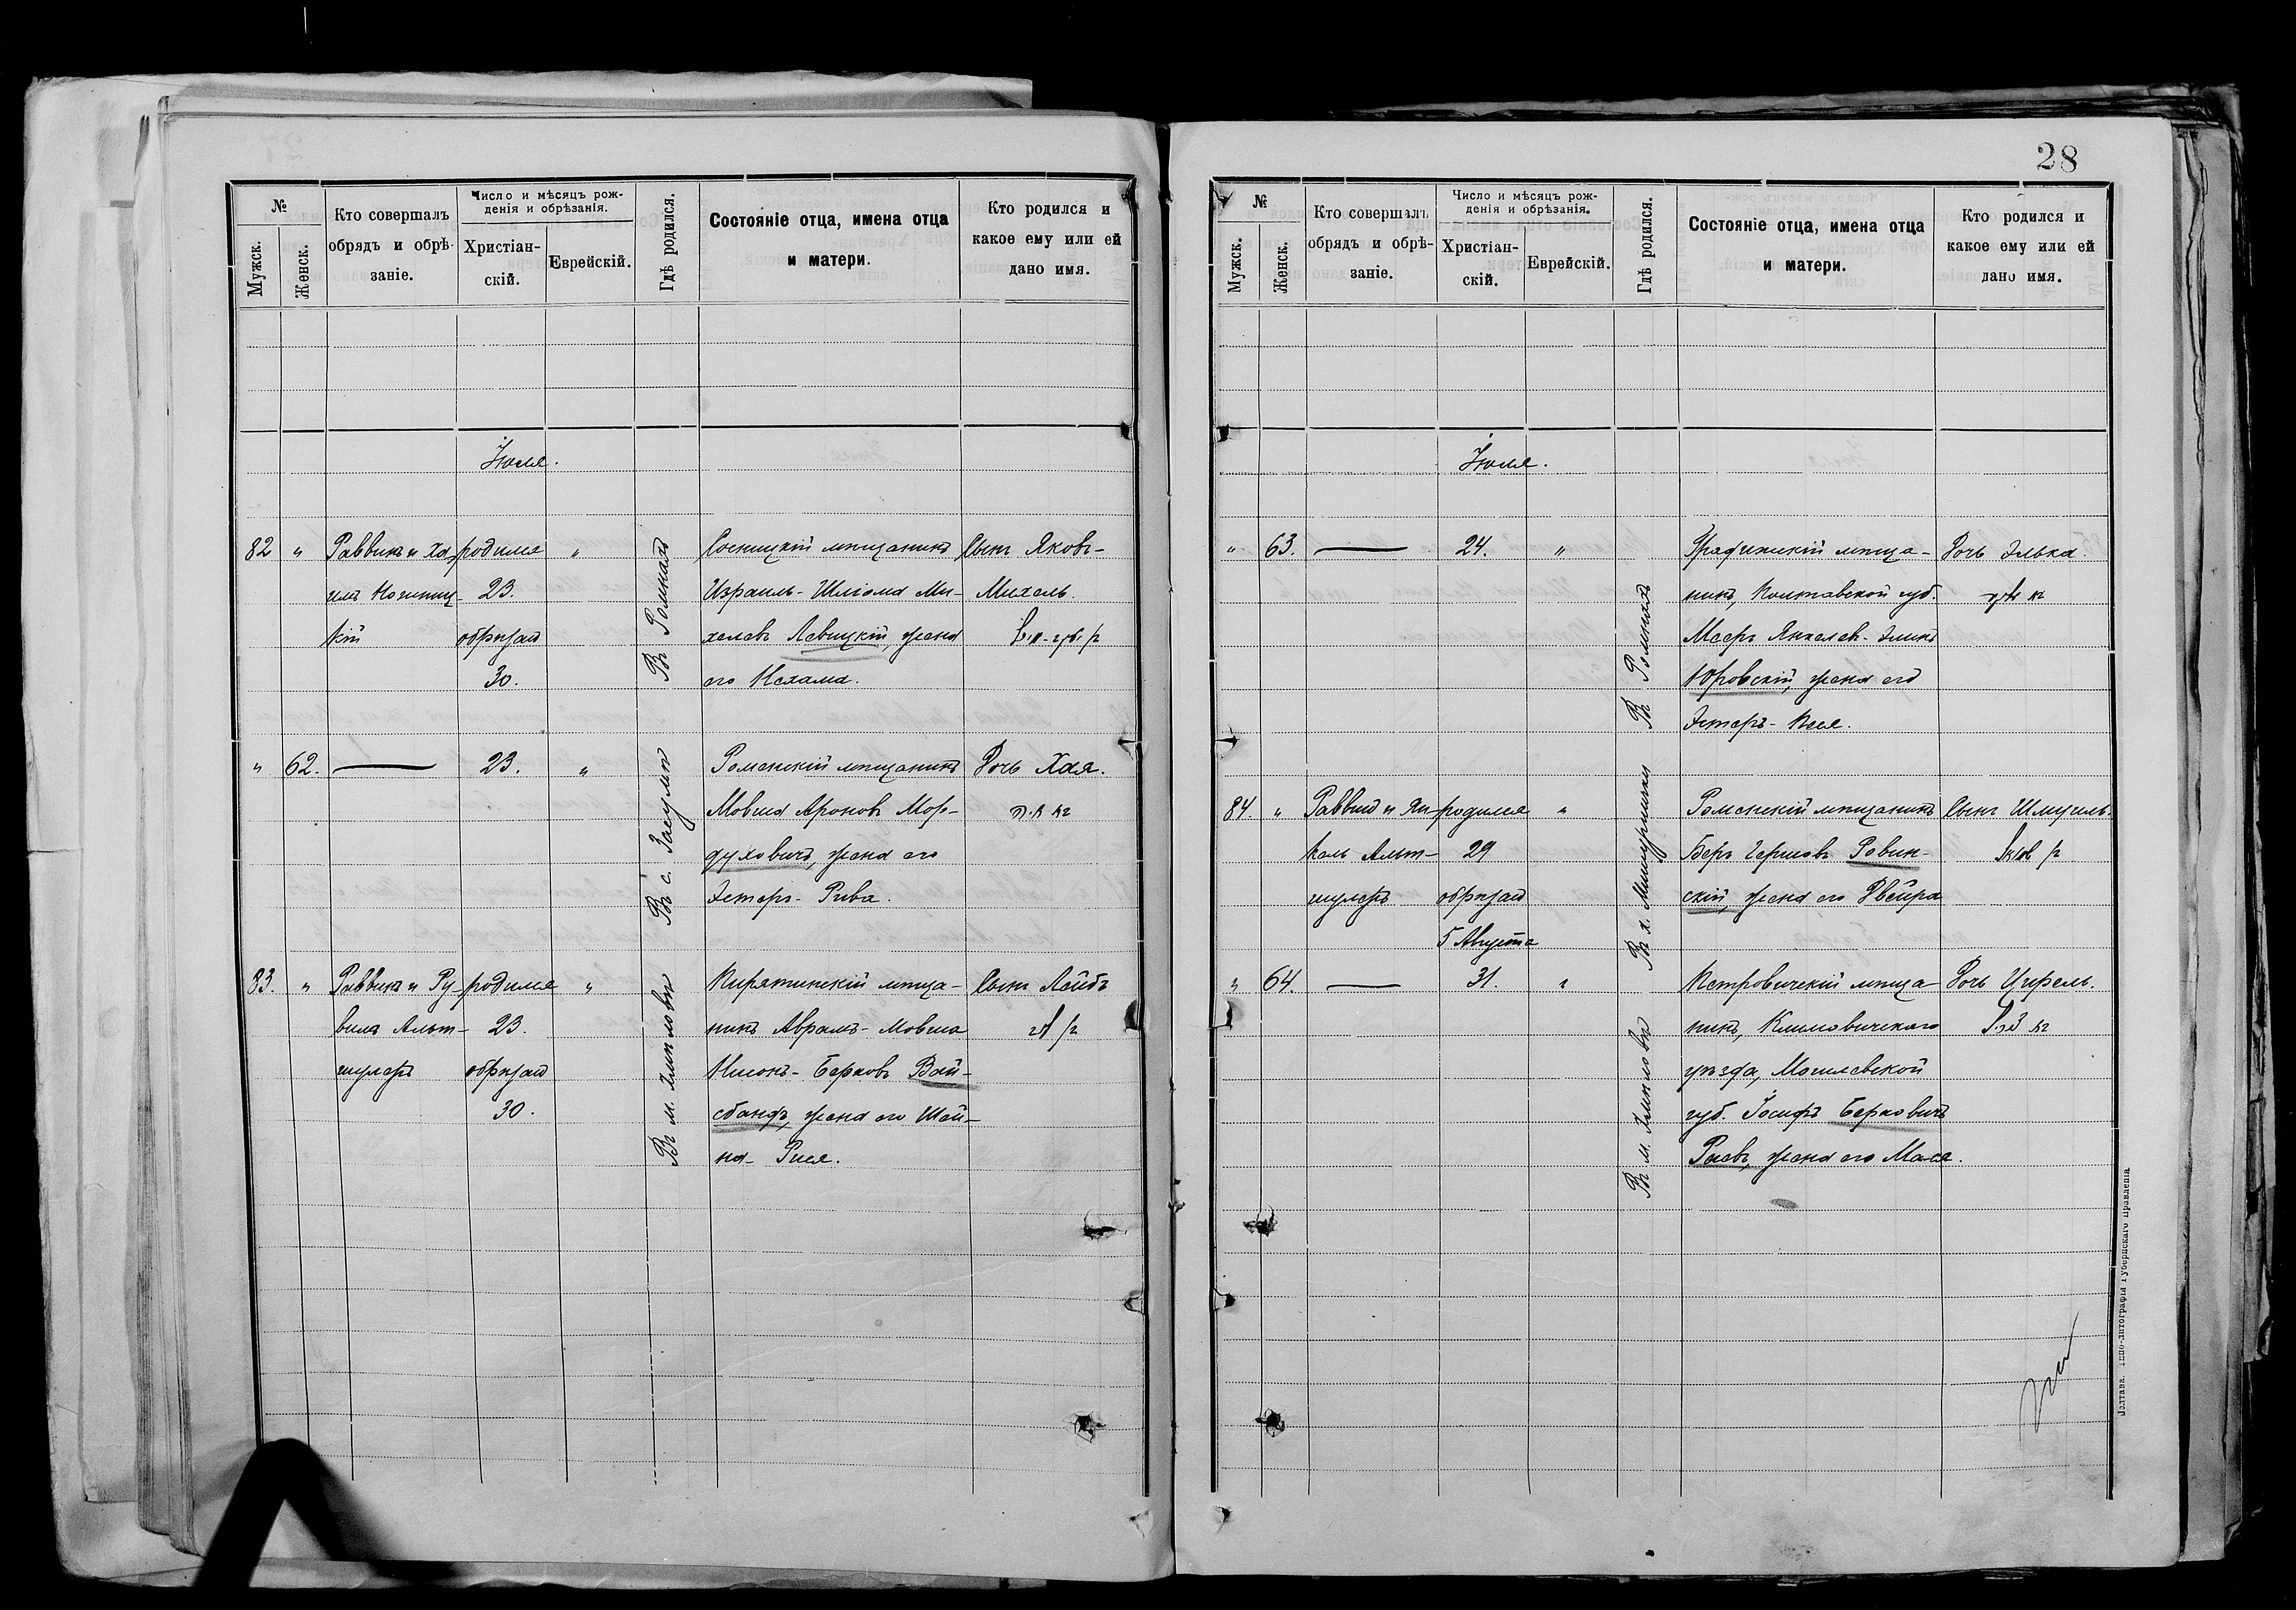 №
Мужск.
Женск.
Кто совершалъ
обрядъ и обрѣ-
заніе.
Число и мѣсяцъ рож-
денія и обрѣзанія.
Христіан-
скій.
Еврейскій.
Гдѣ родился.
Состояніе отца, имена отца
и матери.
Кто родился и
какое ему или ей
дано имя.
Іюля.
82 " Раввинъ и Ха- родился "
23.
кій обрѣзанъ
30.
Въ Ромнахъ
Сосницкій мѣщанинъ
Израиль-Шліома Ми-
хелевъ Левицкій, жена
его Нехама.
Сынъ Яковъ-
Михель.
" 62. — 23. "
Въ с. Засульи
Роменскій мѣщанинъ
Мовша Ароновъ Мор-
духовичъ, жена его
Эстеръ-Рива.
Дочь Хая.
83. " Раввинъ и Ру- родился "
вимъ Альт- 23.
шулеръ обрѣзанъ
30.
Въ м. Смѣловѣ
Пирятинскій мѣща-
нинъ Абрамъ-Мовша
Нисонъ-Берковъ Вай-
сбандъ, жена его Шей-
на-Рися.
Сынъ Лейбъ
28
№
Мужск.
Женск.
Кто совершалъ
обрядъ и обрѣ-
заніе.
Число и мѣсяцъ рож-
денія и обрѣзанія.
Христіан-
скій.
Еврейскій.
Гдѣ родился.
Состояніе отца, имена отца
и матери.
Кто родился и
какое ему или ей
дано имя.
Іюля.
" 63. — 24. "
Въ Ромнахъ
Градижскій мѣща-
нинъ, Полтавской губ.
Мееръ Янкелев-Эликъ
Юровскій, жена его
Эстеръ-Вея.
Дочь Элька.
84. " Раввинъ и Ян- родился "
кель Альт- 29
шулеръ обрѣзанъ
5 Августа
Роменскій мѣщанинъ
Беръ Гершовъ Ровин-
скій, жена его Двейра
Сынъ Шмуель.
" 64. — 31. "
Въ м. Смѣловѣ
Петровичскій мѣща-
нинъ, Климовичскаго
уѣзда, Могилевской
губ. Іосифъ Берковичъ
жена его Мася.
Дочь Цирель.
Полтава. Типо-литографія Губернскаго Правленія